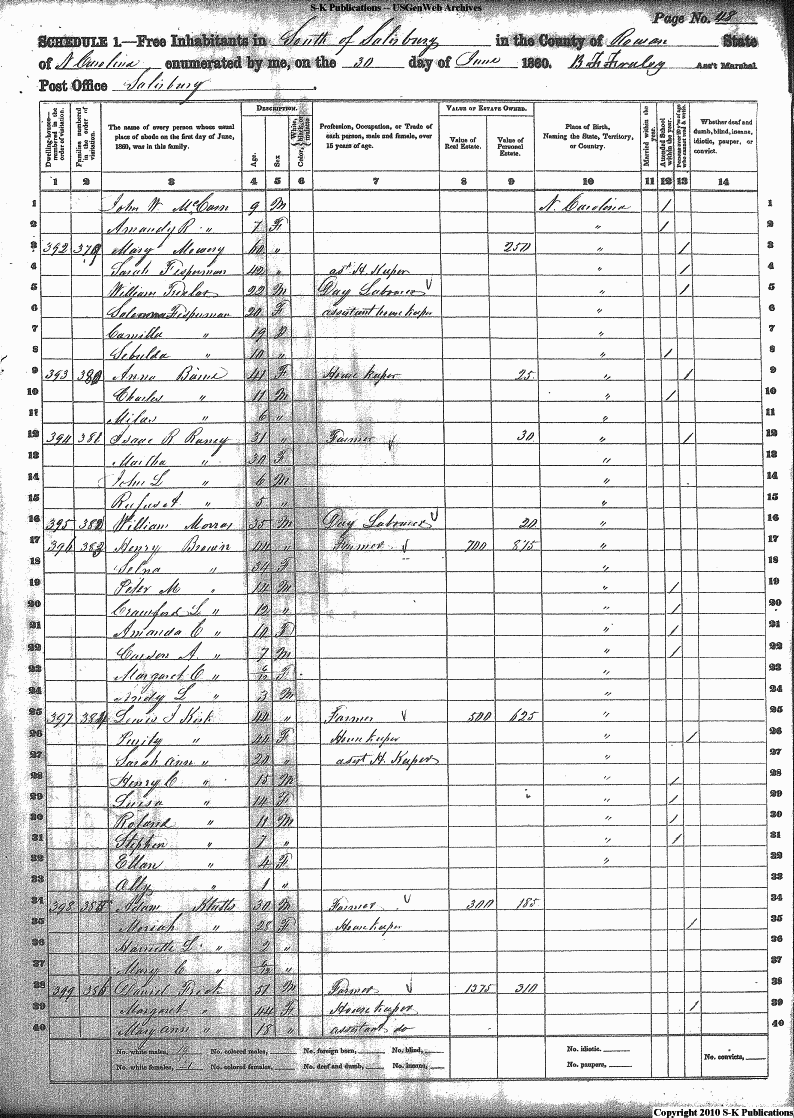 S-K Publications -- USGenWeb Archives
Page No. 48
SCHEDULE 1.—Free Inhabitants in South of Salisbury in the County of Rowan State
of N Carolina enumerated by me, on the 30 day of June 1860. Ass't Marshal
Post Office Salisbury.
Dwelling-houses—numbered in the order of visitation. Families numbered in the order of visitation. The name of every person whose usual place of abode on the first day of June, 1860, was in this family. DESCRIPTION. Age. Sex. Profession, Occupation, or Trade of each person, male and female, over 15 years of age. VALUE OF ESTATE OWNED. Value of Real Estate. Value of Personal Estate. Place of Birth, Naming the State, Territory, or Country. Married within the year. Attended School within the year. Whether deaf and dumb, blind, insane, idiotic, pauper, or convict.
1 2 3 4 5 6 7 8 9 10 11 12 13 14
1 John W McCorn 9 M N. Carolina / 1
2 Amandy R " 7 F " / 2
3 392 379 Mary Mowery 60 " 250 " / 3
4 Sarah Fisperman 42 " ast H. Keeper " / 4
5 William 22 M Day Laborer " / 5
6 Fisperman 20 F assistant house keeper " 6
7 Camilla " 19 " 7
8 " 10 " " / 8
9 393 380 Anna 41 F House keeper 25 " / 9
10 Charles " 11 M " / 10
11 Milas " 6 " " 11
12 394 381 Isaac R Raney 31 " Farmer 30 " / 12
13 Martha " 30 F " 13
14 John L " 6 M " 14
15 Rufus A " 5 " " 15
16 395 382 William 35 M Day Laborer 20 " 16
17 396 383 Henry Brown 44 " Farmer 700 875 " 17
18 " 34 F " 18
19 Peter M " 14 M " / 19
20 Crawford L " 12 " " / 20
21 Amanda C " 10 F " / 21
22 Carson A. " 7 M " / 22
23 Margaret C " F " 23
24 Andy L " 3 M " 24
25 397 384 Lewis J Kirk 44 " Farmer 500 625 " 25
26 Purity " 44 F House keeper " / 26
27 Sarah Ann " 20 " asst H. Keeper " 27
28 Henry C " 15 M " / 28
29 Luisa " 14 F " / 29
30 Roland " 11 M " / 30
31 Stephen " 7 " " / 31
32 Ellan " 4 F " 32
33 Ally " 1 " 33
34 398 385 Adam 30 M Farmer 300 185 34
35 Moriah " 28 F House keeper / 35
36 Harriette L " 2 " 36
37 Mary C " " 37
38 399 386 Daniel 51 M Farmer 1375 310 38
39 Margaret " 44 F House keeper / 39
40 Mary Ann " 18 " assistant do 40
No. white males, No. colored males, No. foreign born, No. blind, No. idiotic. No. convicts,
No. white females, No. colored females, No. deaf and dumb, No. insane, No. paupers,
Copyright 2010 S-K Publications